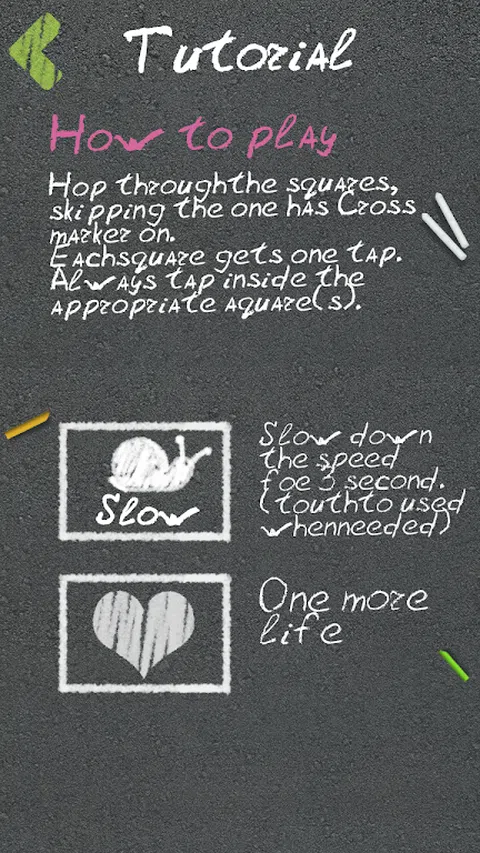 Tutorial
How to play
Hop throughthe squares,
skipping the one has Cross
marker on.
Eachsquare gets one tap.
Always tap inside the
appropriate aquare(s).
Slow
Slow down
the speed
foe 3 second.
(touthto used
whenneeded)
One more
life